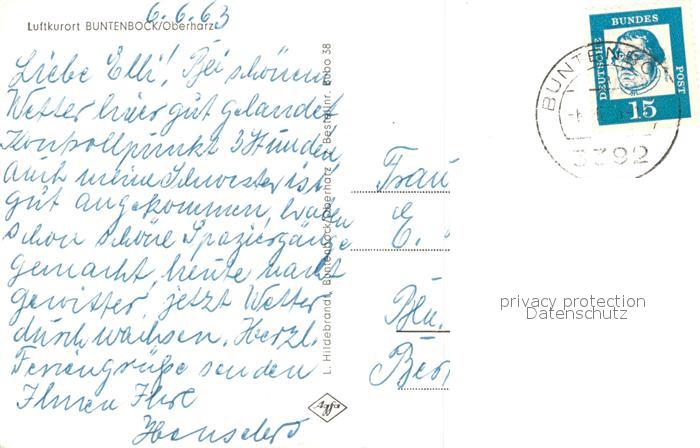 6.6.63
Luftkurort BUNTENBOCK/Oberharz
Liebe Elli! Bei schönem
Wetter hier gut gelandet
Kontrollpunkt 3 Stunden,
auch meine Schwester ist
gut angekommen, haben
schon schöne Spaziergänge
gemacht, heute Nacht
Gewitter, jetzt Wetter
durchwachsen. Herzl.
Feriengrüße senden
Ihnen Ihre
L. Hildebrandt, Buntenbock/Oberharz Bestellnr. Bobo 38
Agfa
Frau
E.
Ber
DEUTSCHE BUNDES POST
15
BUNTENBOCK
3392
privacy protection
Datenschutz